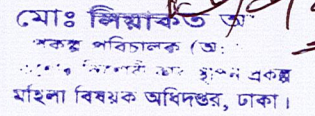 মোঃ লিয়াকত অ
প্রকল্প পরিচালক (অঃ
প্রকল্প
মহিলা বিষয়ক অধিদপ্তর, ঢাকা।